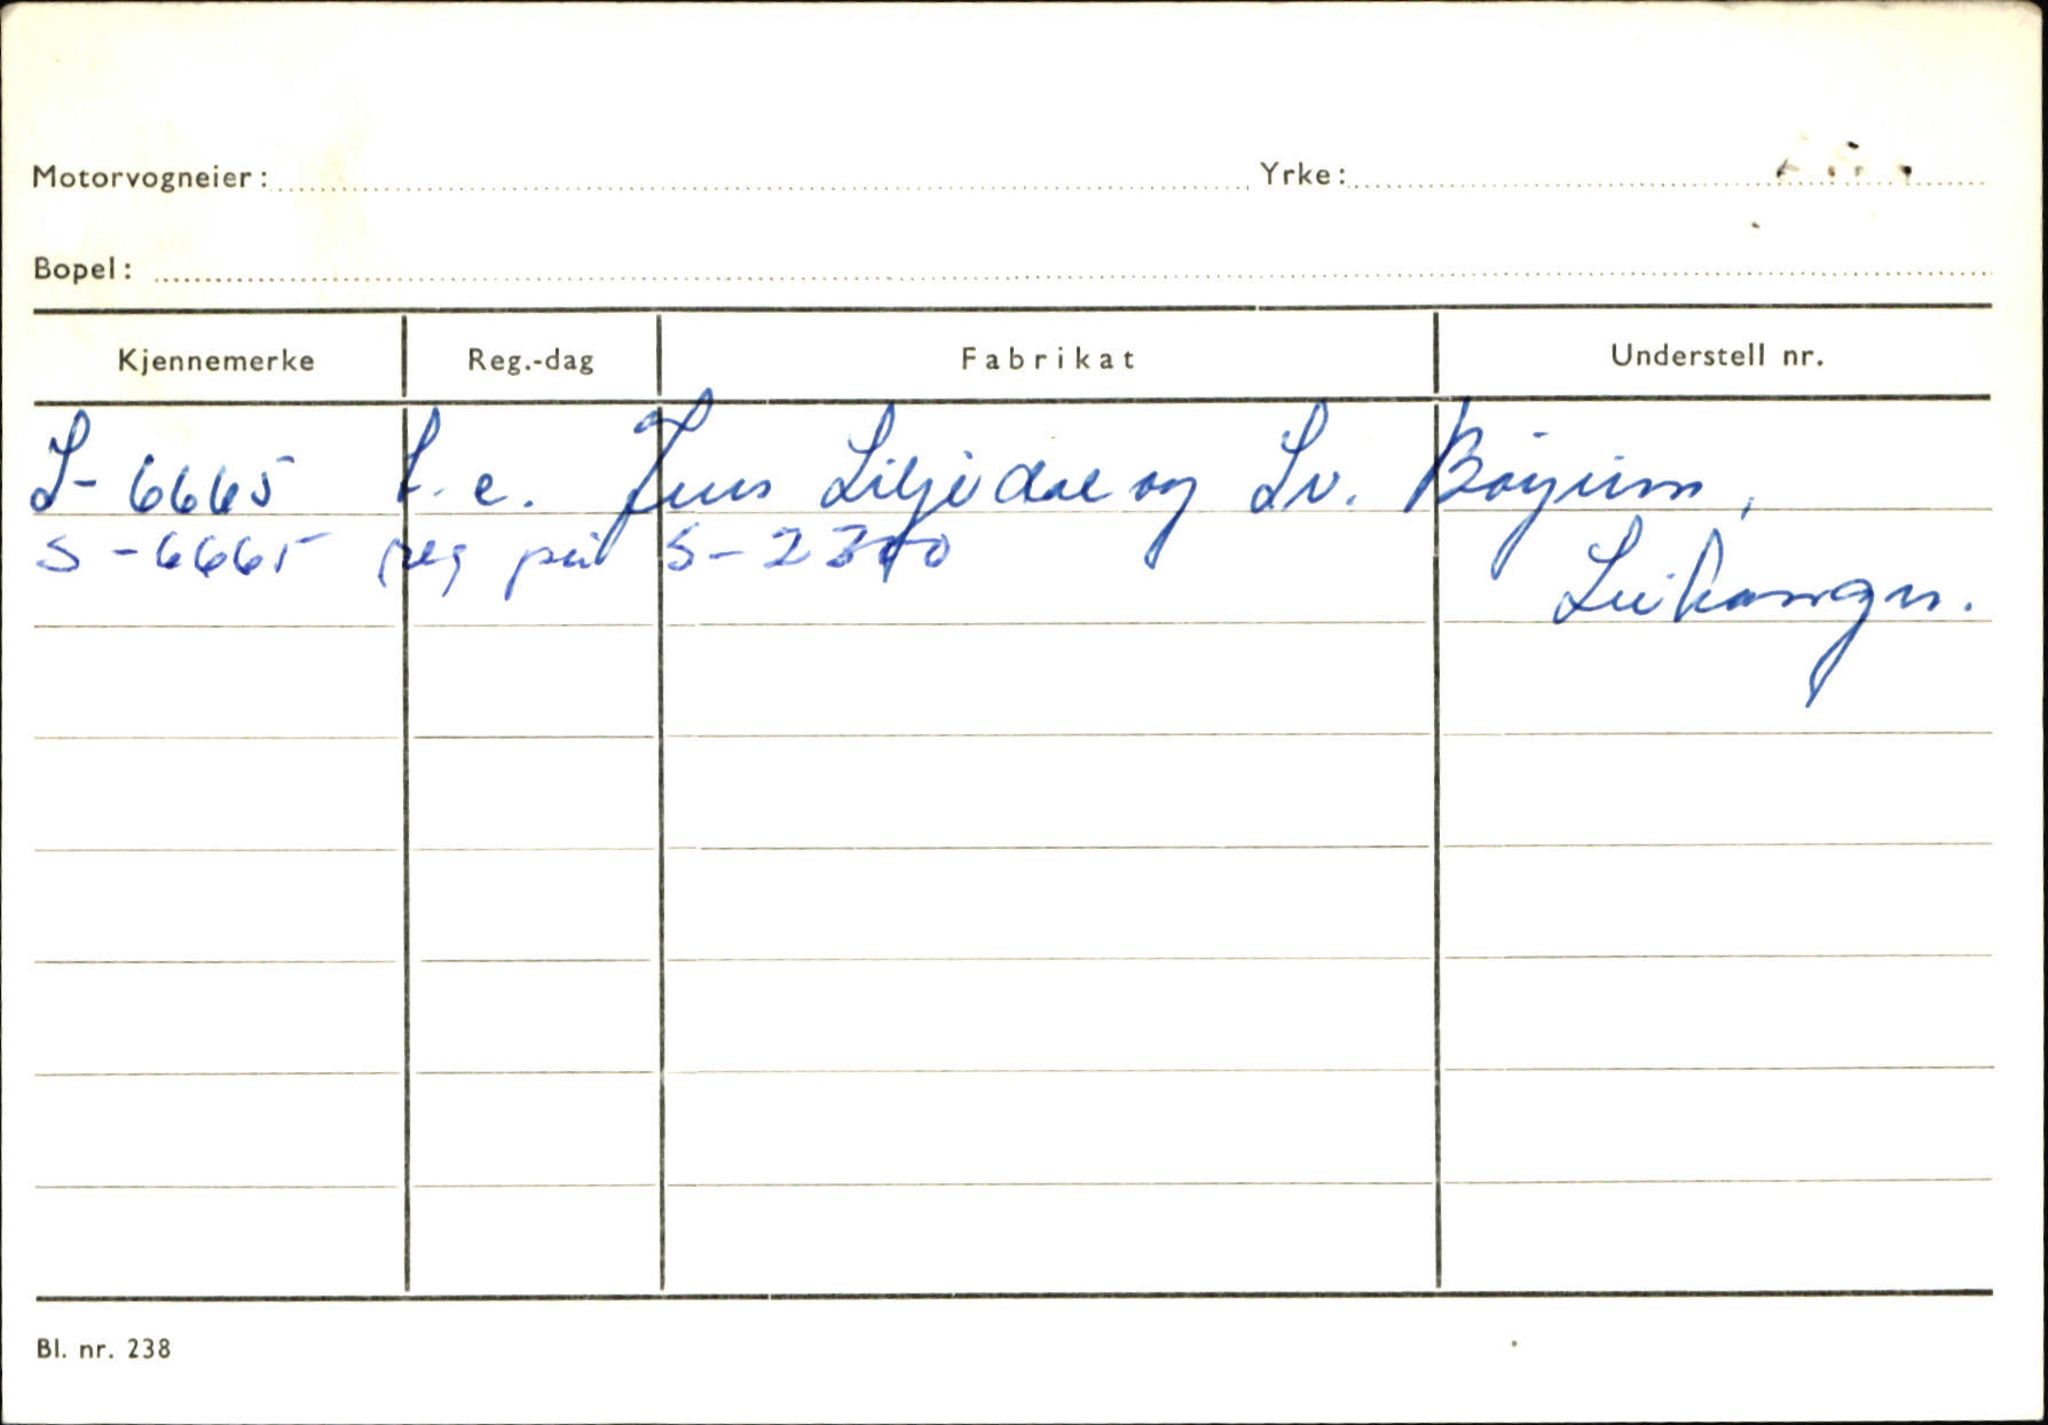 Motorvogneier:
Yrke:
Bopel:
Kjennemerke Reg.-dag Fabrikat Understell nr.
S-6665 t.e. Jens Liljedal og Sv. Bøyum,
Leikanger.
S-6665 reg på S-2340
Bl. nr. 238